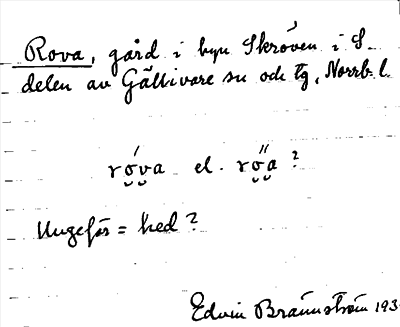 Rova, gård i byn Skröven i S
delen av Gällivare sn och tg, Norrb. l.
róva el. rőa ?
Ungefär = hed ?
Edvin Brännström 193